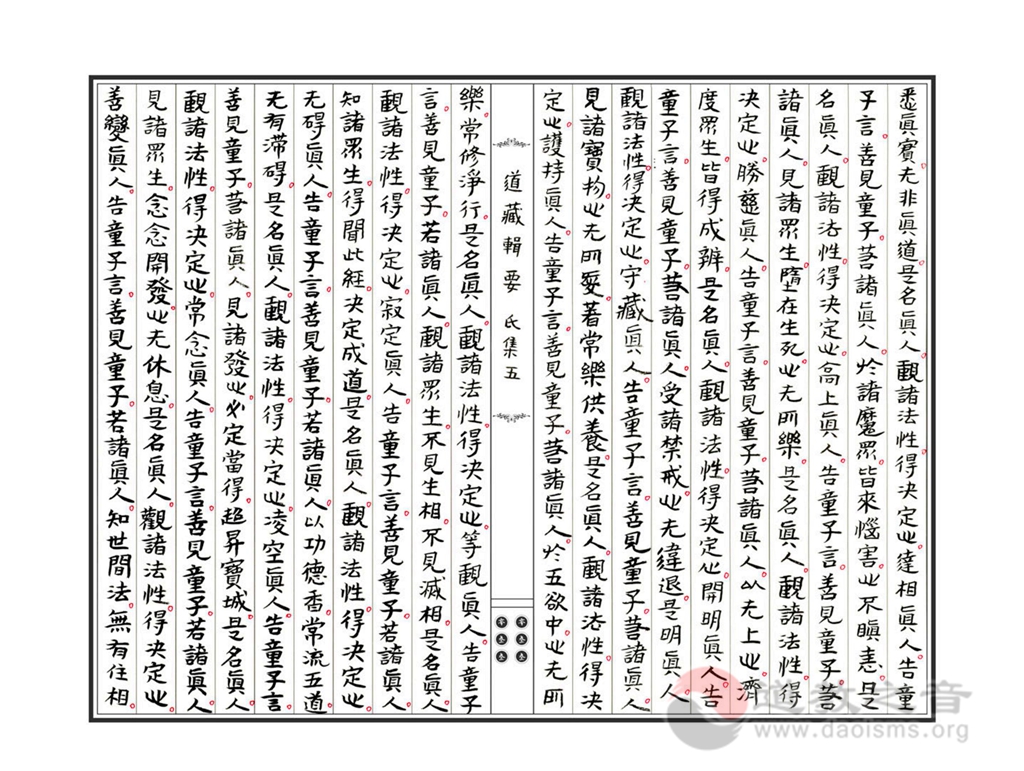 悉眞實无非眞道是名眞人觀諸法性得決定也達相眞人告童
子言善見童子若諸眞人於諸魔眾皆來惱害也不瞋恚是
名眞人觀諸法性得決定也高上眞人告童子言善見童子若
諸眞人見諸眾生墮在生死也无所樂是名眞人觀諸法性得
決定也勝慈眞人告童子言善見童子若諸眞人以无上也濟
度眾生皆得成辨是名眞人觀諸法性得決定也開明眞人告
童子言善見童子若諸眞人受諸禁戒也无違退是明眞人
觀諸法性得決定也守藏眞人告童子言善見童子若諸眞人
見諸寶物也无所愛著常樂供養是名眞人觀諸法性得決
定也護持眞人告童子言善見童子若諸眞人於五欲中也无所
道藏輯要 氏集五
樂常修淨行是名眞人觀諸法性得決定也等觀眞人告童子
言善見童子若諸眞人觀諸眾生不見生相不見滅相是名眞人
觀諸法性得決定也寂定眞人告童子言善見童子若諸眞人
知諸眾生得聞此經決定成道是名眞人觀諸法性得決定也
无碍眞人告童子言善見童子若諸眞人以功德香常流五道
无有滯碍是名眞人觀諸法性得決定也凌空眞人告童子言
善見童子若諸眞人見諸發也必定當得超昇寶城是名眞人
觀諸法性得決定也常念眞人告童子言善見童子若諸眞人
見諸眾生念念開發也无休息是名眞人觀諸法性得決定也
善變眞人告童子言善見童子若諸眞人知世間法無有住相
道教之音
www.daoisms.org